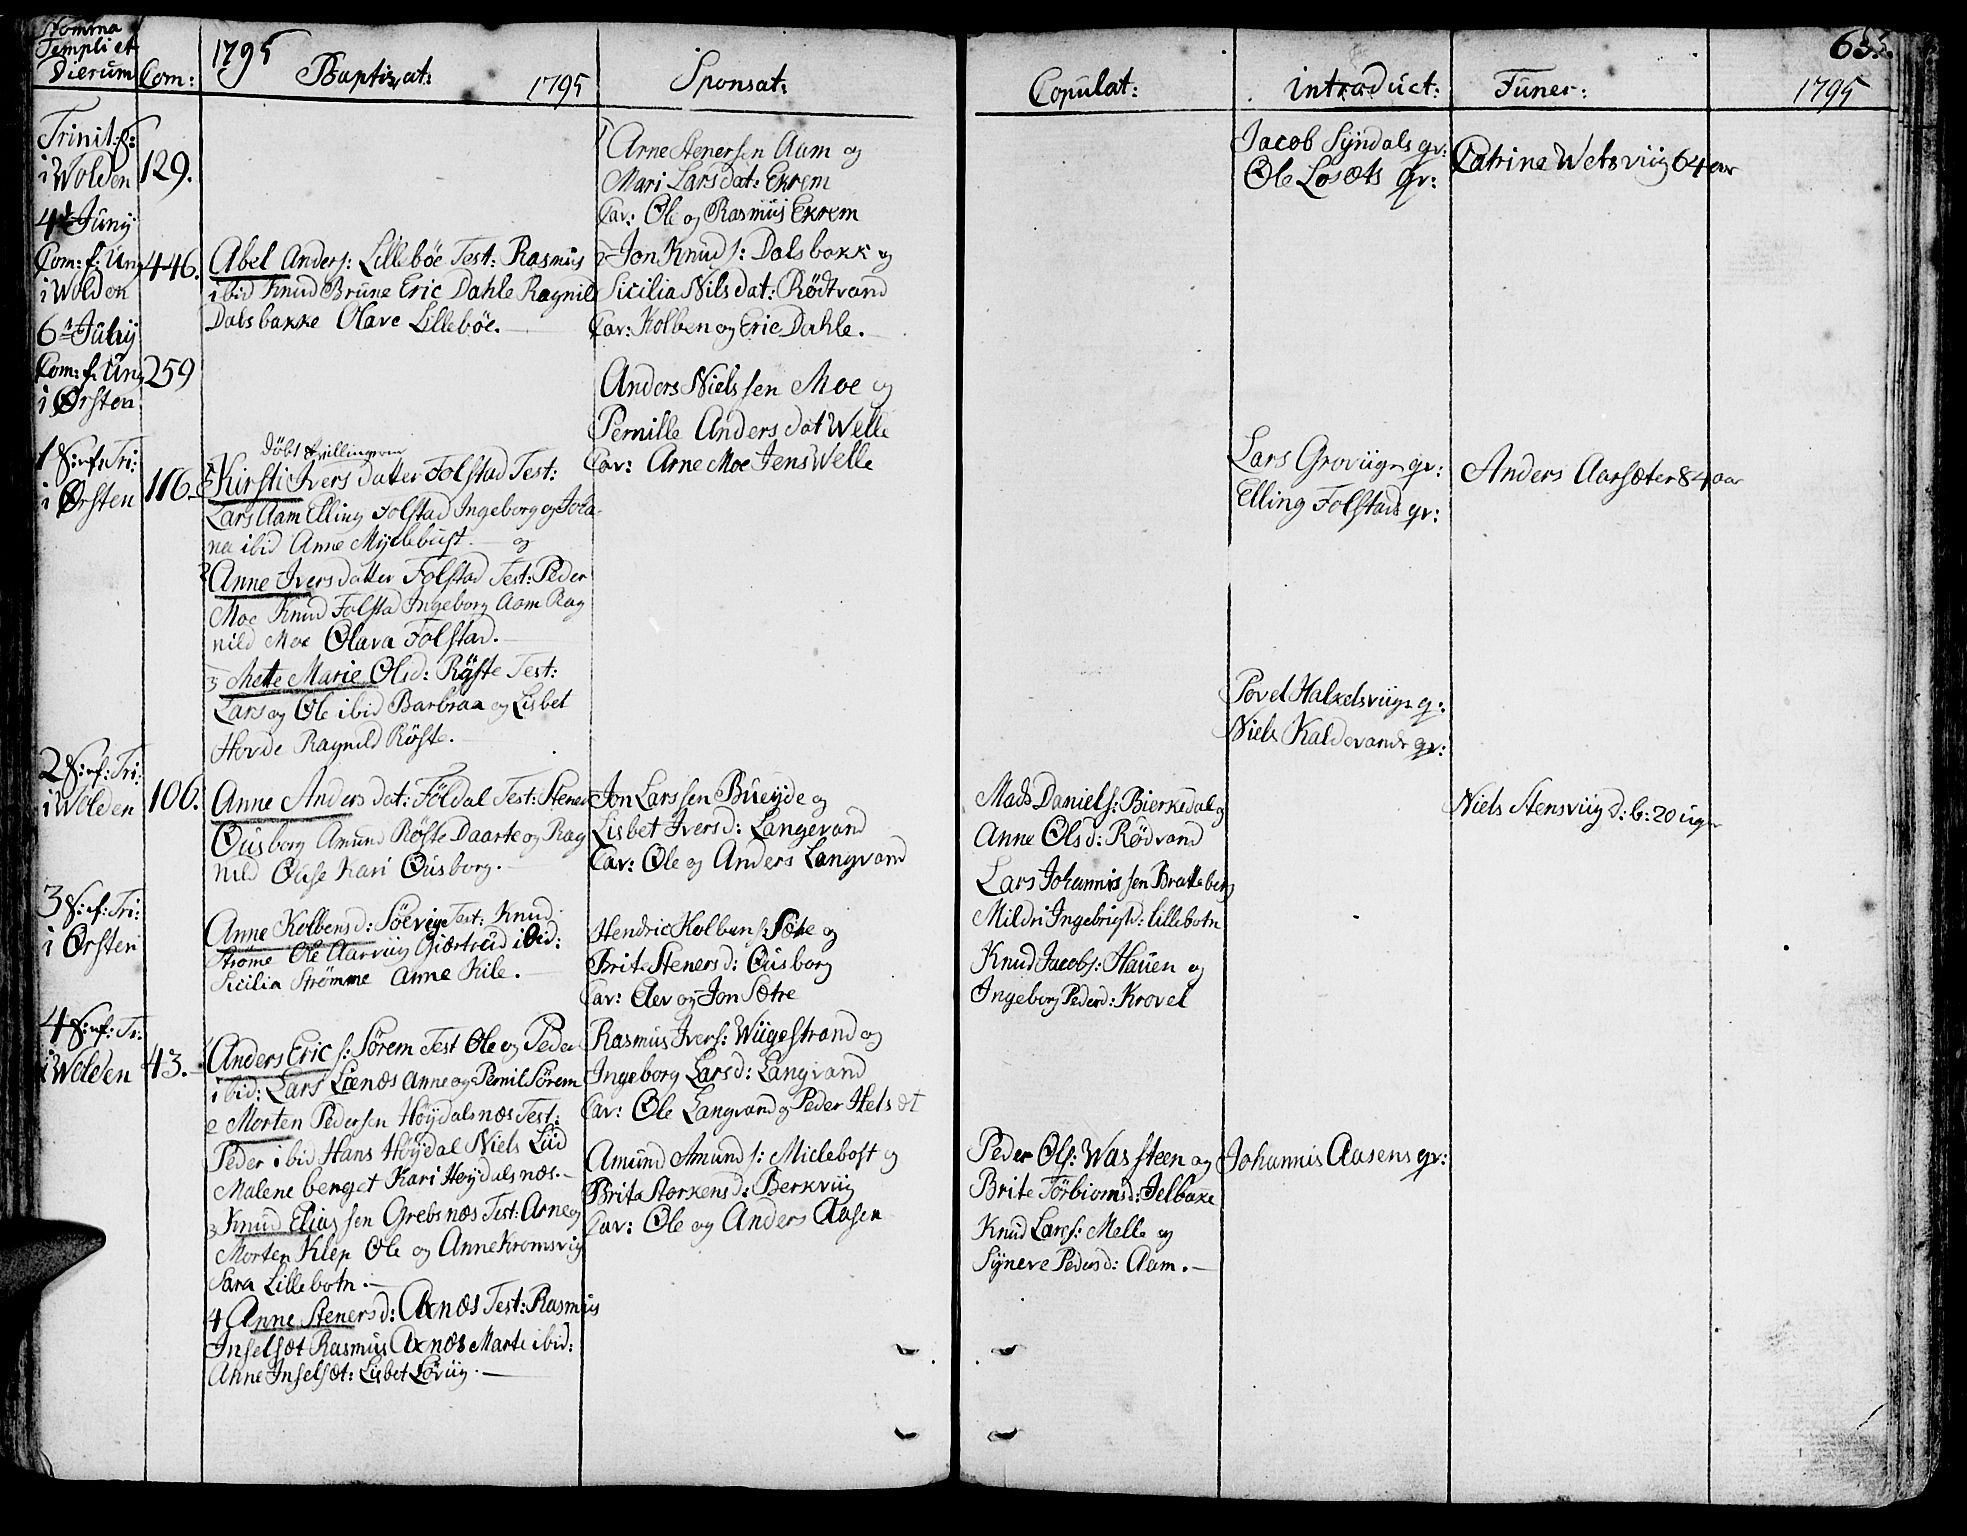 Nomina
Templi et
Dierum
Com:
1795
Baptizat:
1795
Sponsat:
Copulat:
introduct:
Funer:
63.
1795
Trinit: f:
i Wolden
129.
1 Arne Stenersen Aam og
Mari Larsdat: Ekrem
Cav: Ole og Rasmus Ekrem
Jacob Syndals qv:
Ole Losæts qv:
Catrine Wetsviig 64 aar
4 Juny
Com: f: Ung
i Wolden
446.
Abel Anders: Lillebøe Test: Rasmus
ibid Knud Brune Eric Dahle Ragnild
Dalsbakke Olave Lillebøe.
2 Jon Knuds: Dalsbakk og
Sicilia Nilsdat: Rødtvand
Cav: Kolben og Eric Dahle.
6 July
Com: f: Ung
i Ørsten
259
Anders Nielssen Moe og
Pernille Andersdat Welle
Cav: Arne Moe Jens Welle
1 S: ef: Tri:
i Ørsten
116.
døbt tvillingerne
1 Kirsti Ivers datter Folstad Test:
Lars Aam Elling Folstad Ingeborg og Joha-
na ibid Anne Myclebust. og
2 Anne Ivers datter Folstad Test: Peder
Moe Knud Folsta Ingeborg Aam Rag
nild Moe Olava Folstad.
3 Mette Marie Olsd: Røste Test:
Lars og Ole ibid Barbraa og Lisbet
Hovde Ragnild Røste.
Lars Groviigs qv:
Elling Folstads qv:
Anders Aarsæter 84 aar
Povel Halkelsviigs qv:
Niels Kaldevands qv:
2 S: ef: Tri:
i Wolden
106.
Anne Andersdat: Føldal Test: Stener
Ousborg Amund Røste Daarte og Rag
nild Ouse Kari Ousborg.
Jon Larssen Bueyde og
Lisbet Iversd: Langevand
Cav: Ole og Anders Langvand
Mads Daniels: Bierkedal og
Anne Olsd: Rødvand
Lars Johannissen Bratteberg
Mildri Ingebrigtd: Lillebotn
Niels Stensviig d: b: 20 uger
3 S: ef: Tri:
i Ørsten
Anne Kolbensd: Søevige Test: Knud
Strøme Ole Aarviig Giærtrud ibid:
Sicilia Strømme Anne Kile.
Hendric Kolbens: Sætre og
Brite Stenersd: Ousborg
Cav: Elev og Jon Sætre
Knud Jacobs: Hauen og
Ingeborg Pedersd: Krovel
4 S: ef: Tr:
i Wolden
43.
1 Anders Erics: Sørem Test Ole og Peder
ibid: Lars Lænæs Anne og Pernil Sørem
2 Morten Pedersen Høydalsnæs Test:
Peder ibid Hans Høydal Niels Lüd
Malene berget Kari Høydalsnæs.
3 Knud Eliassen Grebsnæs Test: Arne og
Morten Klep Ole og Anne Kromsvig
Sara Lillebotn.
4 Anne Stenersd: Axnæs Test: Rasmus
Inselsæt Rasmus Axnæs Marte ibid:
Anne Inselsæt: Lisbet Løviig.
Rasmus Ivers: Wiigestrand og
Ingeborg Larsd: Langvand
Cav: Ole Langvand og Peder Helsæt
Amund Amunds: Miclebost og
Brita Storkensd: Berkviig
Cav: Ole og Anders Aasen
Peder Ols: Wassteen og
Brite Torbiornsd: Ielbakke
Knud Lars: Melle og
Synneve Pedersd: Aam.
Johannis Aasens qv: